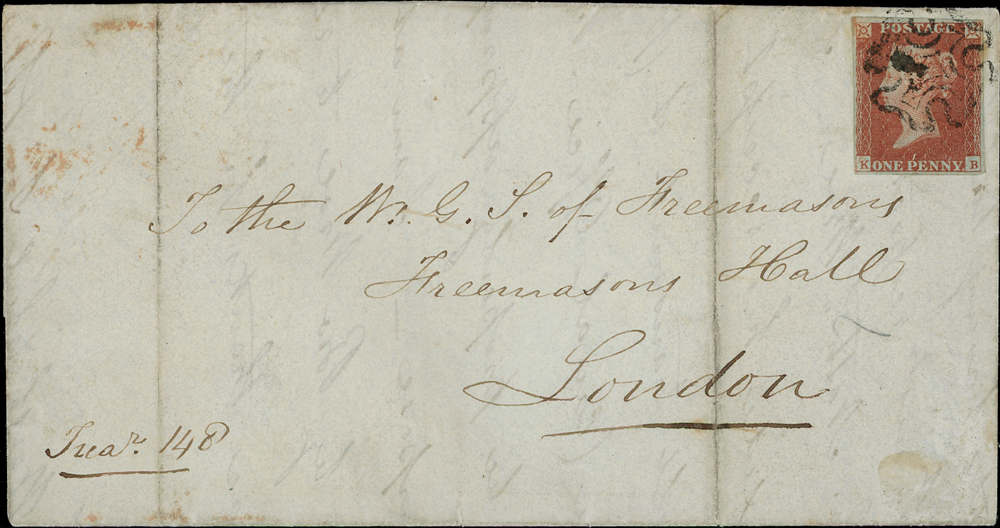 POSTAGE
ONE PENNY
K B
To the W. G. S. of Freemasons
Freemasons Hall
London
Trear. 148